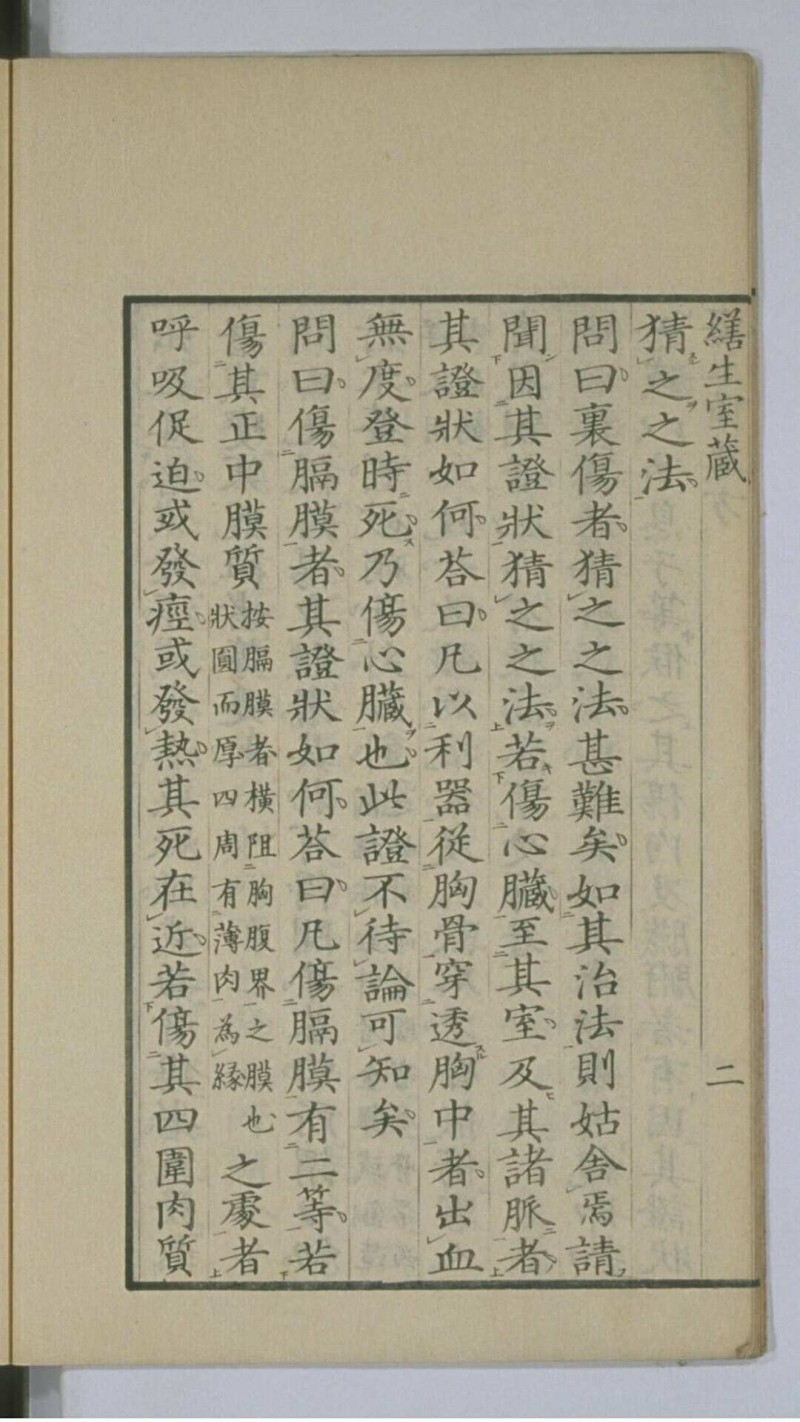 繕生室藏 二
猜之之法
問曰裏傷者猜之之法甚難矣如其治法則姑舍焉請
聞因其證狀猜之之法若傷心臟至其室及其諸脈者
其證狀如何荅曰凡以利器從胸骨穿透胸中者出血
無度登時死乃傷心臟也此證不待論可知矣
問曰傷膈膜者其證狀如何荅曰凡傷膈膜有二等若
傷其正中膜質
按膈膜者橫阻胸腹界之膜也
狀圓而厚四周有薄肉為緣
之處者
呼吸促迫或發痙或發熱其死在近若傷其四圍肉質